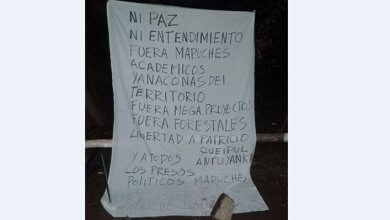 NI PAZ
NI ENTENDIMIENTO
FUERA MAPUCHES
ACADEMICOS
YANACONAS DEL
TERRITORIO
FUERA MEGA PROYECTOS
FUERA FORESTALES
LIBERTAD A PATRICIO
QUEIPUL
Y A TODOS ANTU YANKI
LOS PRESOS
POLITICOS MAPUCHE